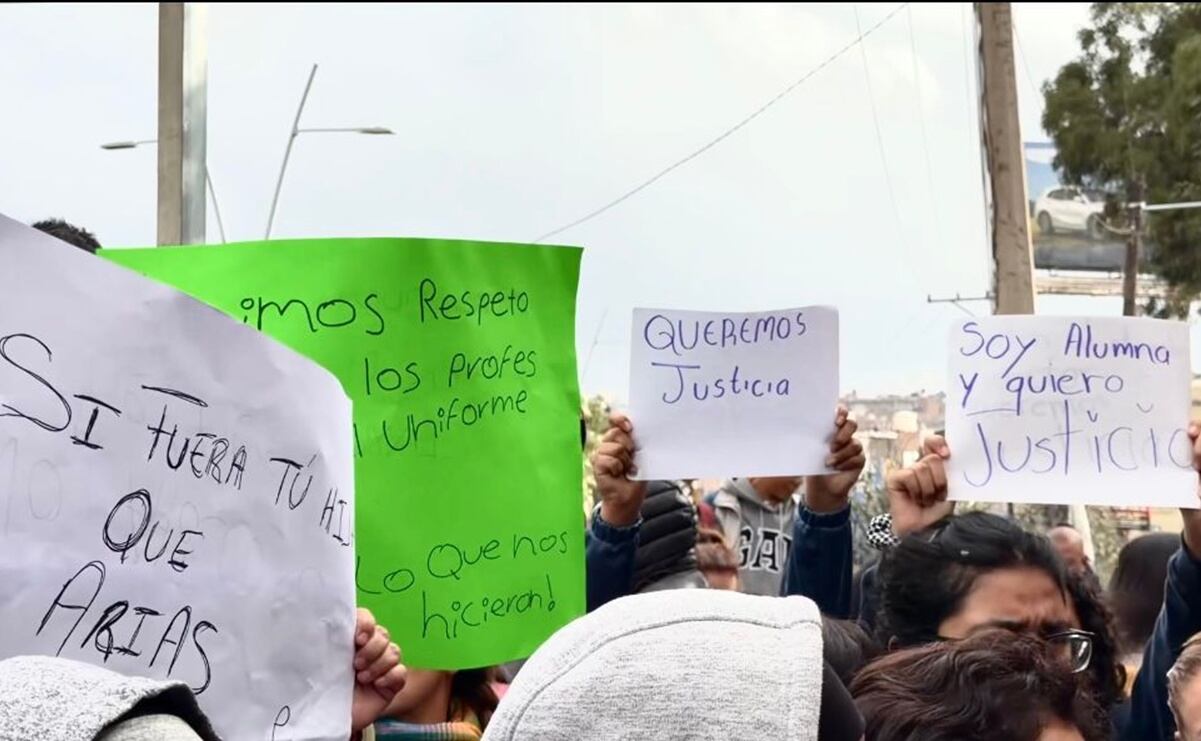 SI FUERA TÚ
QUE
ARIAS
Respeto
los Profes
Uniforme
Lo Que nos
hicieron!
QUEREMOS
Justicia
Soy Alumna
y quiero
Justicia
GA